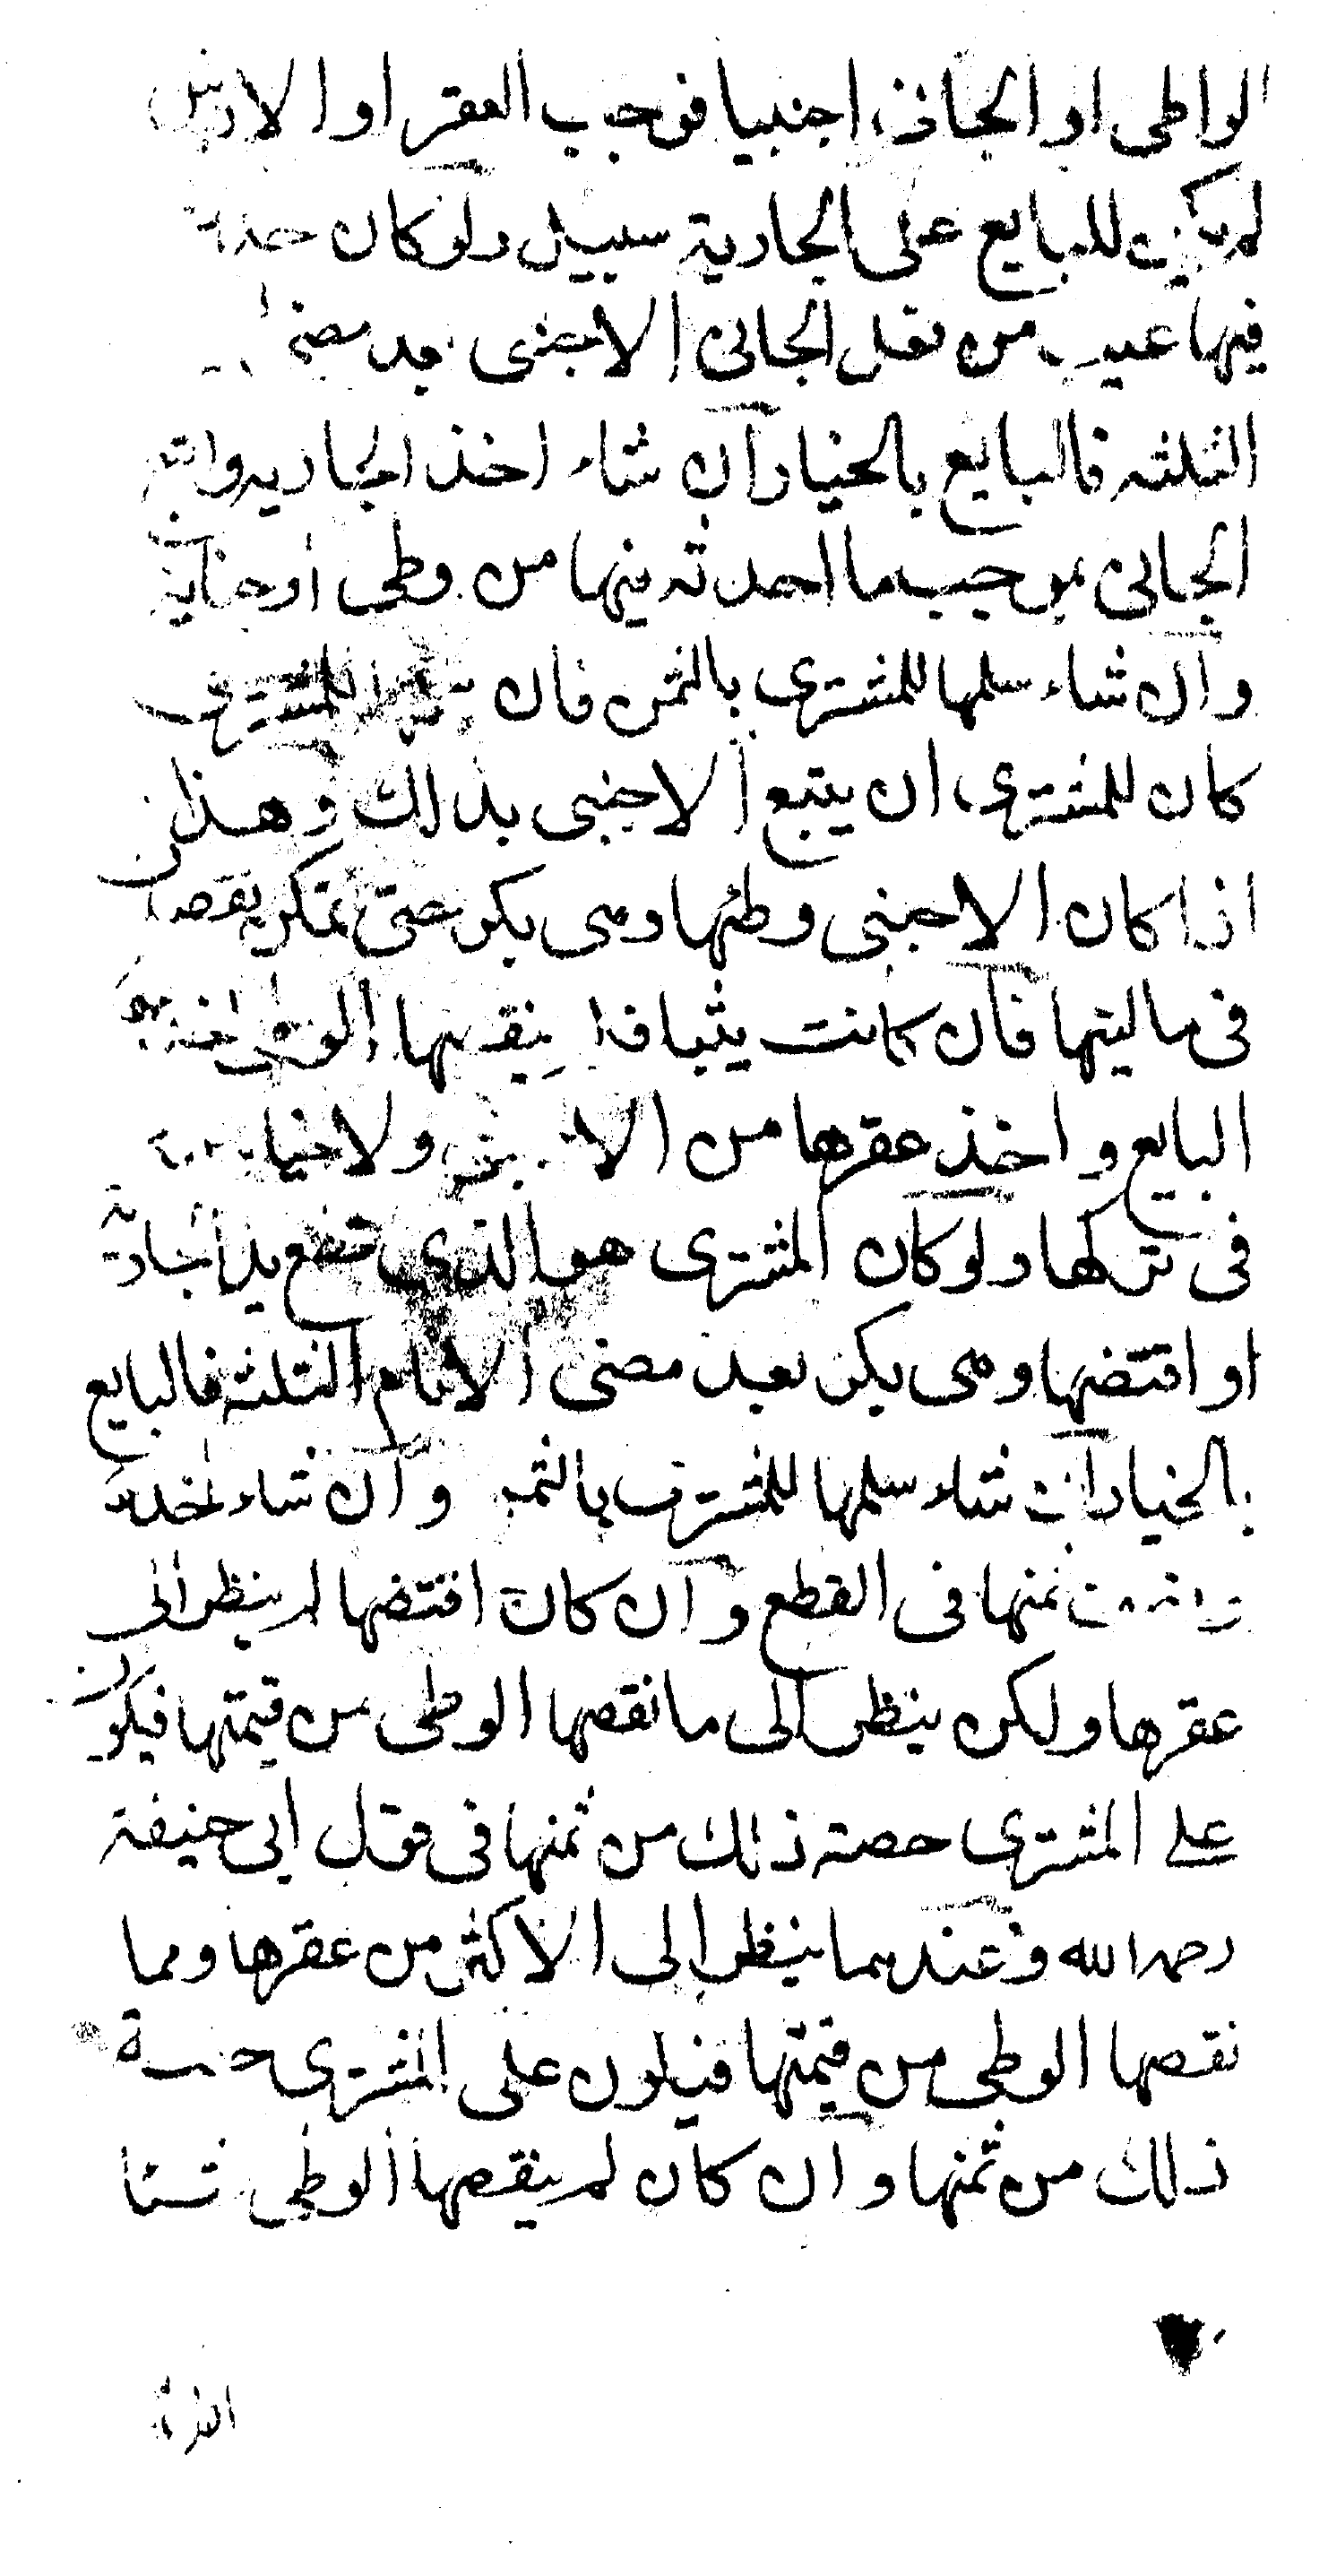 الواطى او الجانى اجنبيا فوجب العقر او الارش
لم يكن للبايع على الجارية سبيل ولو كان حدث
فيها عيب من فعل الجانى الاجنبى بعد مضى
الثلثه فالبايع بالخيار ان شاء اخذ الجاريه واتبع
الجانى بموجب ما احدثه فيها من وطى او جناية
وان شاء سلمها للمشترى بالثمن فان سلمها للمشترى
كان للمشترى ان يتبع الاجنبى بذلك وهذا
اذا كان الاجنبى وطئها وهى بكر حتى تمكن نقصان
فى ماليتها فان كانت ثيبا فلم ينقصها الوطى اخذها
البايع واخذ عقرها من الاجنبى ولا خيار له
فى تركها ولو كان المشترى هو الذى قطع يد الجارية
او افتضها وهى بكر بعد مضى الايام الثلثه فالبايع
بالخيار ان شاء سلمها للمشترى بالثمن وان شاء اخذها
ثمنها فى القطع وان كان افتضها لم ينظر الى
عقرها ولكن ينظر الى ما نقصها الوطى من قيمتها فيكون
على المشترى حصته ذلك من ثمنها فى قول ابى حنيفة
رحمه الله وعندهما ينظر الى الاكثر من عقرها ومما
نقصها الوطى من قيمتها فيكون على المشترى حصة
ذلك من ثمنها وان كان لم ينقصها الوطى شيئا